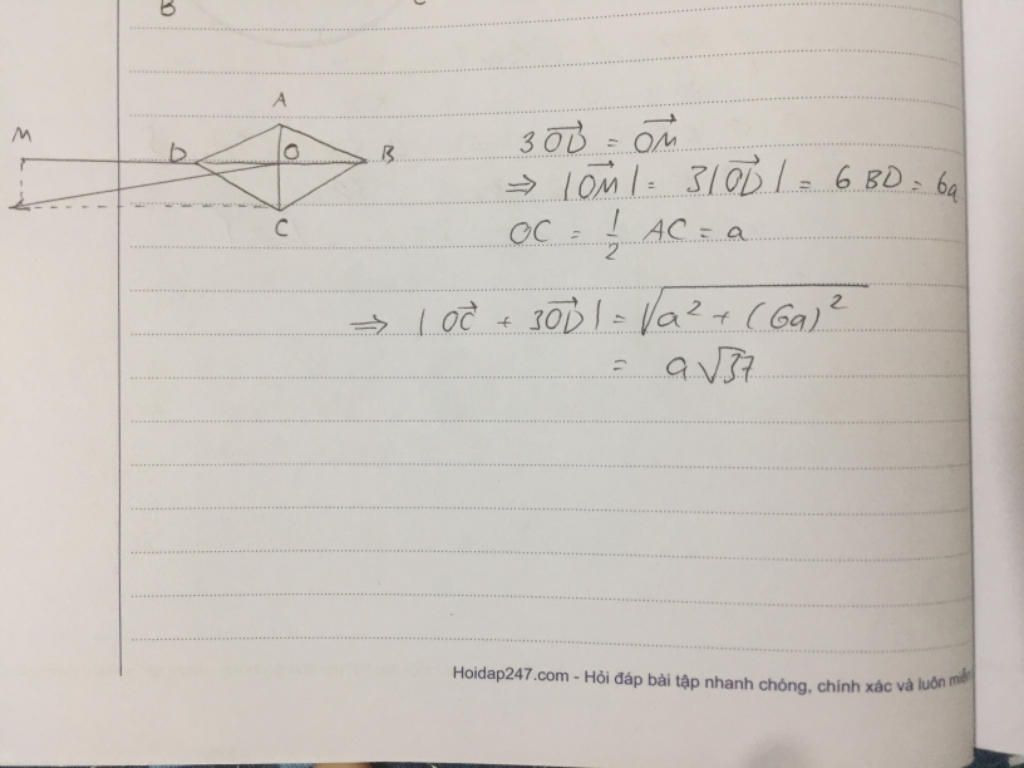 B
A
M
D
O
B
C
3OD⃗ = OM⃗
⇒ |OM⃗| = 3|OD⃗| = 6 BD = 6a
OC = 1/2 AC = a
⇒ |OC⃗ + 3OD⃗| = √(a² + (6a)²)
= a√37
Hoidap247.com - Hỏi đáp bài tập nhanh chóng, chính xác và luôn miễn